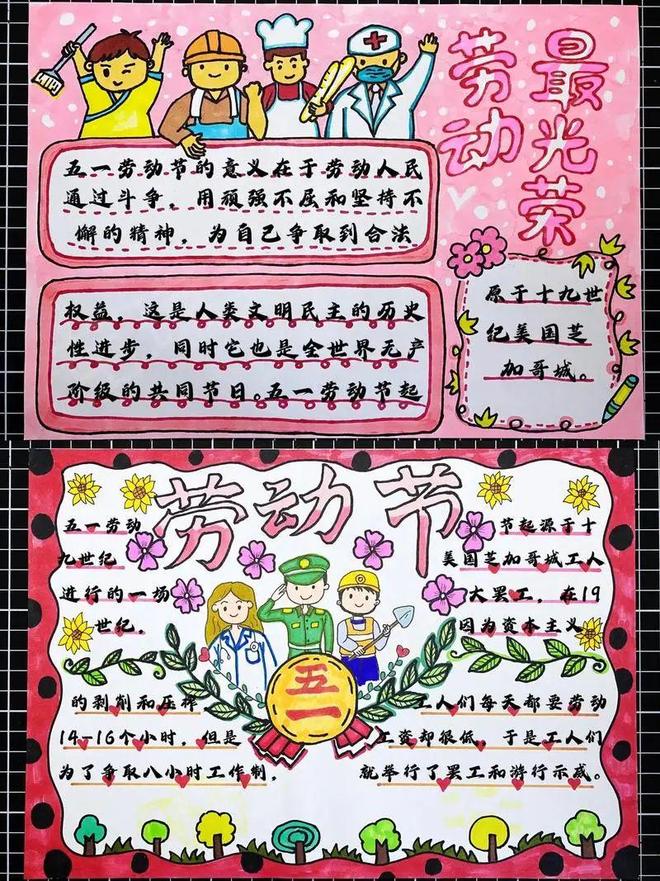 劳动
最光荣
五一劳动节的意义在于劳动人民
通过斗争，用顽强不屈和坚持不
懈的精神，为自己争取到合法
权益，这是人类文明民主的历史
性进步，同时它也是全世界无产
阶级的共同节日。五一劳动节起
原于十九世
纪美国芝
加哥城。
劳动节
五一劳动 节起源于十
九世纪 美国芝加哥城工人
进行的一场 大罢工，在19
世纪， 因为资本主义
五一
的剥削和压榨 工人们每天都要劳动
14-16个小时，但是 工资却很低，于是工人们
为了争取八小时工作制， 就举行了罢工和游行示威。